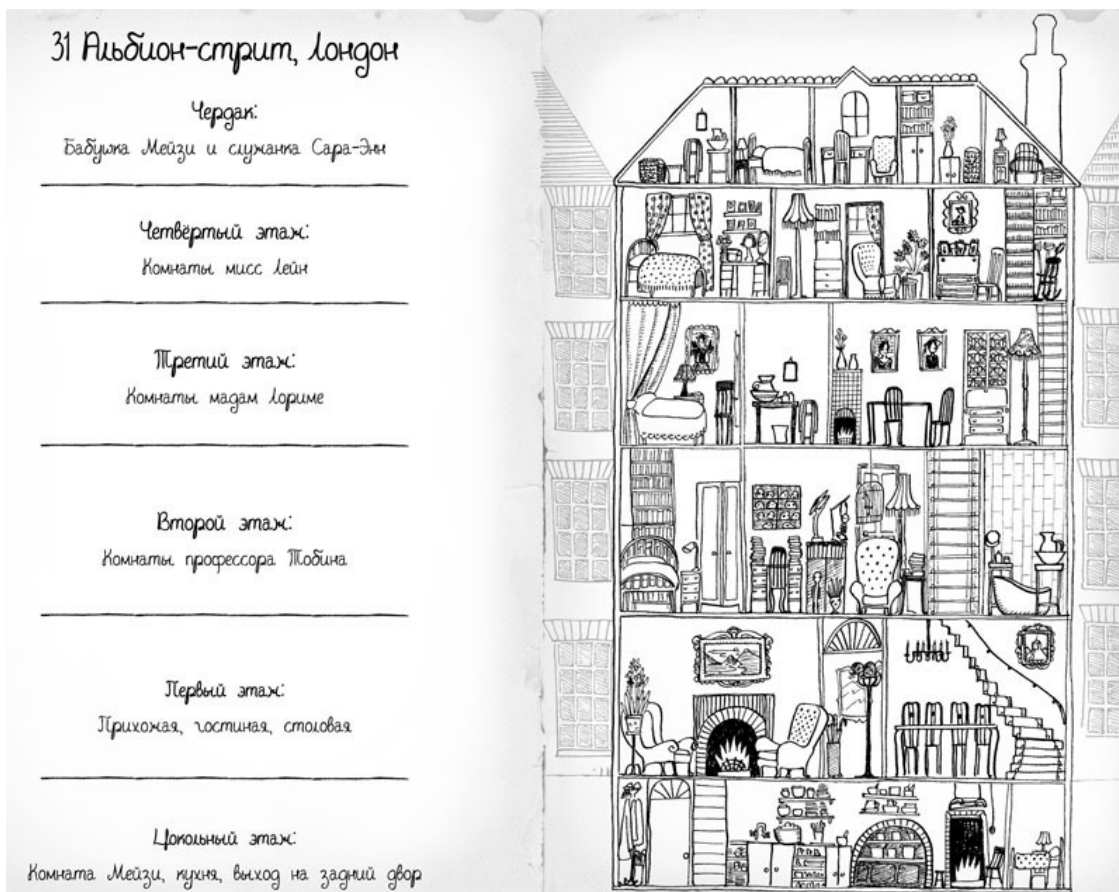 31 Альбион-стрит, Лондон
Чердак:
Бабушка Мейзи и служанка Сара-Энн
Четвёртый этаж:
Комнаты мисс Лейн
Третий этаж:
Комнаты мадам Лориме
Второй этаж:
Комнаты профессора Тобина
Первый этаж:
Прихожая, гостиная, столовая
Цокольный этаж:
Комната Мейзи, кухня, выход на задний двор